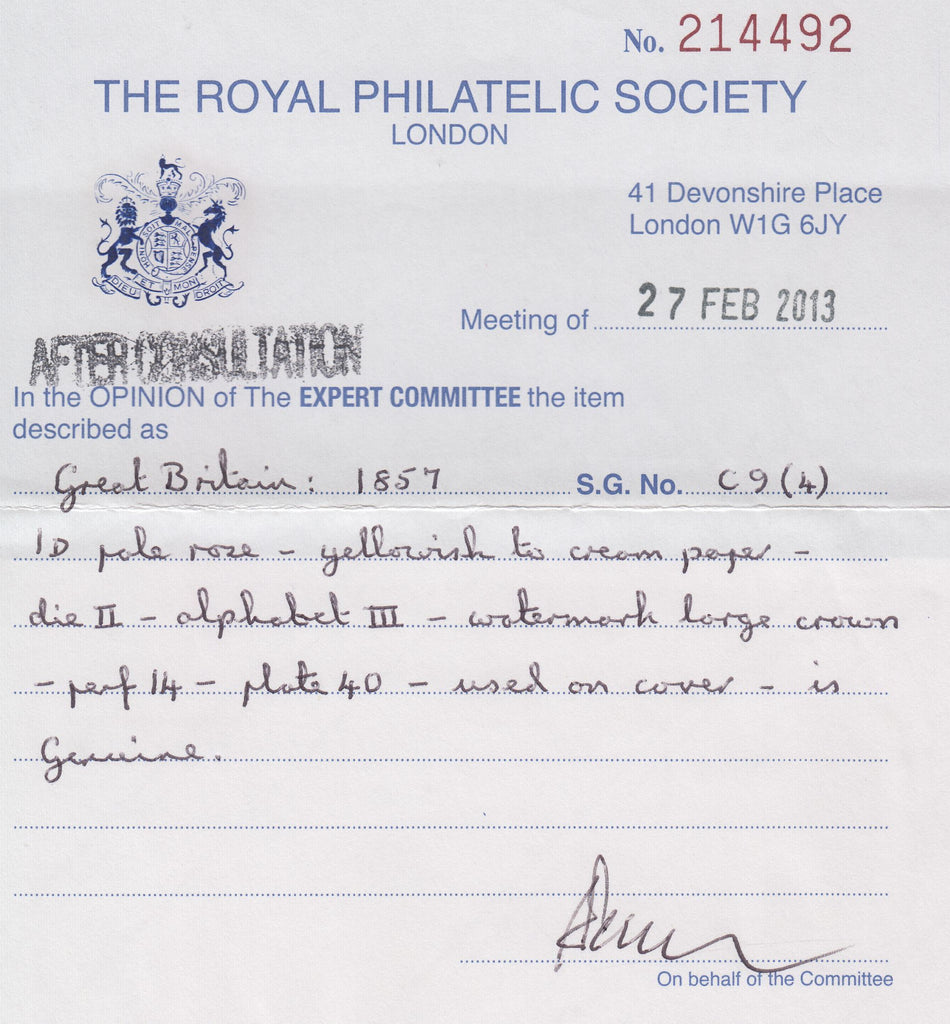 No. 214492
THE ROYAL PHILATELIC SOCIETY
LONDON
41 Devonshire Place
London W1G 6JY
HONI SOIT QUI MAL Y PENSE
DIEU ET MON DROIT
Meeting of 27 FEB 2013
AFTER CONSULTATION
In the OPINION of The EXPERT COMMITTEE the item
described as
Great Britain: 1857 S.G. No. C9(4)
1D pale rose - yellowish to cream paper -
die II - alphabet III - watermark large crown
- perf 14 - plate 40 - used on cover - is
Genuine.
On behalf of the Committee